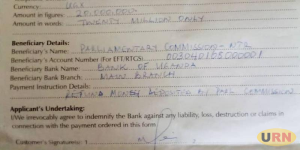 Currency UGX
Amount in figures: 20,000,000
Amount in words: TWENTY MILLION ONLY
Beneficiary Details:
Beneficiary's Name: PARLIAMENTARY COMMISSION - NTR
Beneficiary's Account Number (For EFT/RTGS):
Beneficiary Bank Name: BANK OF UGANDA
Beneficiary Bank Branch: MAIN BRANCH
Payment Instruction Details:
REFUND MONEY DEPOSITED BY PARL COMMISSION
Applicant's Undertaking:
I/We irrevocably agree to indemnify the Bank against any liability, loss, destruction or claims in
connection with the payment ordered in this form.
Customer's Signature(s): 1
URN